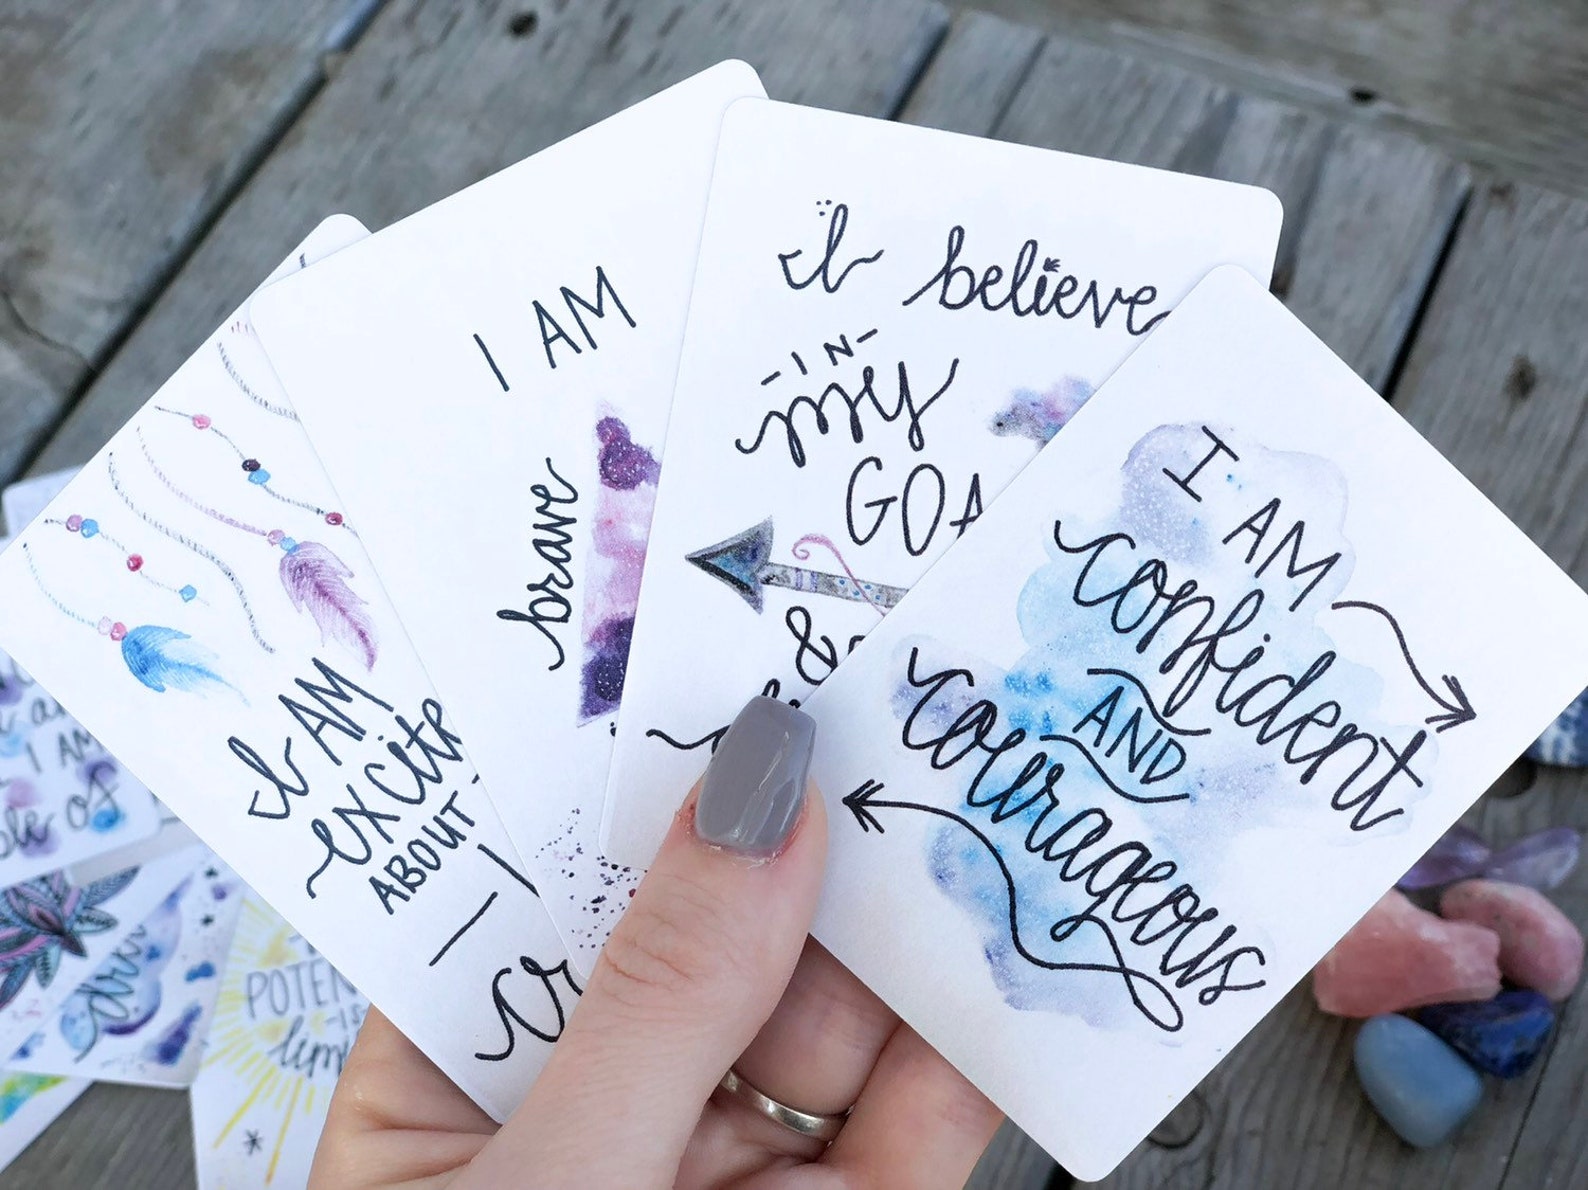 I AM
excited
ABOUT
I AM
brave
I believe
-IN-
my
GOA
&
I AM
confident
AND
courageous
I AM
of
POTEN
-IS-